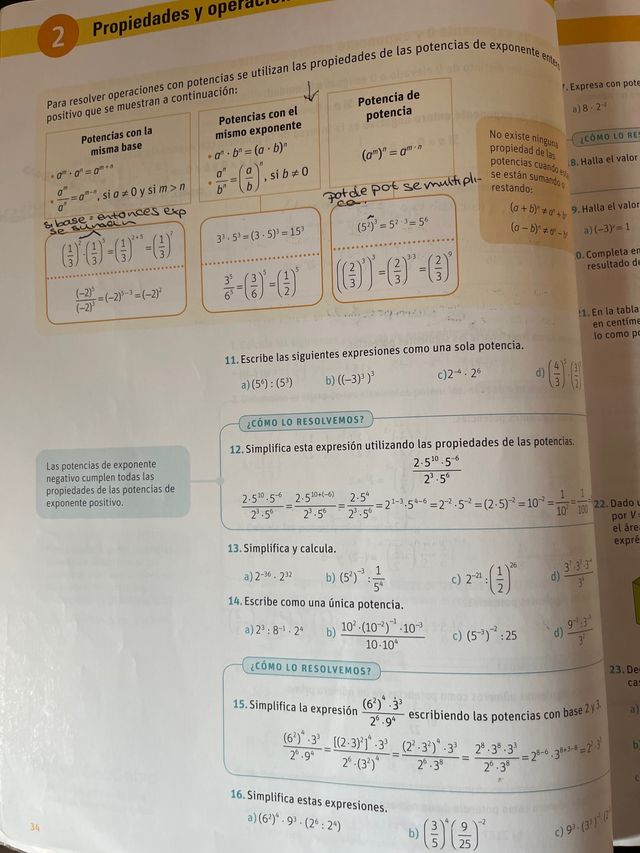 2 Propiedades y operacion
Para resolver operaciones con potencias se utilizan las propiedades de las potencias de exponente entero
positivo que se muestran a continuación:
Potencias con la
misma base
• aᵐ · aⁿ = aᵐ⁺ⁿ
• aᵐ/aⁿ = aᵐ⁻ⁿ, si a ≠ 0 y si m > n
Potencias con el
mismo exponente
• aⁿ · bⁿ = (a · b)ⁿ
• aⁿ/bⁿ = (a/b)ⁿ, si b ≠ 0
Potencia de
potencia
(aᵐ)ⁿ = aᵐ · ⁿ
No existe ninguna
propiedad de las
potencias cuando
se están sumando o
restando:
(a + b)ⁿ ≠ aⁿ + bⁿ
(a − b)ⁿ ≠ aⁿ − bⁿ
base = entonces exp
se suman
pot de pot se multipli-
ca.
(1/3)² · (1/3)⁵ = (1/3)²⁺⁵ = (1/3)⁷
(−2)⁵/(−2)³ = (−2)⁵⁻³ = (−2)²
3³ · 5³ = (3 · 5)³ = 15³
3⁵/6⁵ = (3/6)⁵ = (1/2)⁵
(5²)³ = 5² · ³ = 5⁶
((2/3)³)³ = (2/3)³·³ = (2/3)⁹
11. Escribe las siguientes expresiones como una sola potencia.
a) (5⁶) : (5³) b) ((−3)³)³ c) 2⁻⁴ · 2⁶ d) (4/3)
¿CÓMO LO RESOLVEMOS?
12. Simplifica esta expresión utilizando las propiedades de las potencias.
2·5¹⁰·5⁻⁶/2³·5⁶
2·5¹⁰·5⁻⁶/2³·5⁶ = 2·5¹⁰⁺⁽⁻⁶⁾/2³·5⁶ = 2·5⁴/2³·5⁶ = 2¹⁻³·5⁴⁻⁶ = 2⁻²·5⁻² = (2·5)⁻² = 10⁻² = 1/10² = 1/100
Las potencias de exponente
negativo cumplen todas las
propiedades de las potencias de
exponente positivo.
13. Simplifica y calcula.
a) 2⁻³⁶ · 2³² b) (5²)⁻³ : 1/5⁴ c) 2⁻²¹ : (1/2)²⁶ d)
14. Escribe como una única potencia.
a) 2³ : 8⁻¹ · 2⁴ b) 10²·(10⁻²)⁻¹·10⁻³/10·10⁴ c) (5⁻³)⁻² : 25 d)
¿CÓMO LO RESOLVEMOS?
15. Simplifica la expresión (6²)⁴·3³/2⁶·9⁴ escribiendo las potencias con base 2 y 3.
(6²)⁴·3³/2⁶·9⁴ = [(2·3)²]⁴·3³/2⁶·(3²)⁴ = (2²·3²)⁴·3³/2⁶·3⁸ = 2⁸·3⁸·3³/2⁶·3⁸ = 2⁸⁻⁶·3⁸⁺³⁻⁸ = 2²·3³
16. Simplifica estas expresiones.
a) (6²)⁴ · 9³ · (2⁶ : 2⁴) b) (3/5)⁴ (9/25)⁻² c)
34
7. Expresa con pote
a) 8 · 2⁻²
¿CÓMO LO RE
8. Halla el valor
9. Halla el valor
a) (−3)ˣ = 1
0. Completa en
resultado d
21. En la tabla
en centíme
lo como p
22. Dado u
por V
el áre
expré
23. De
ca
a)
b
c